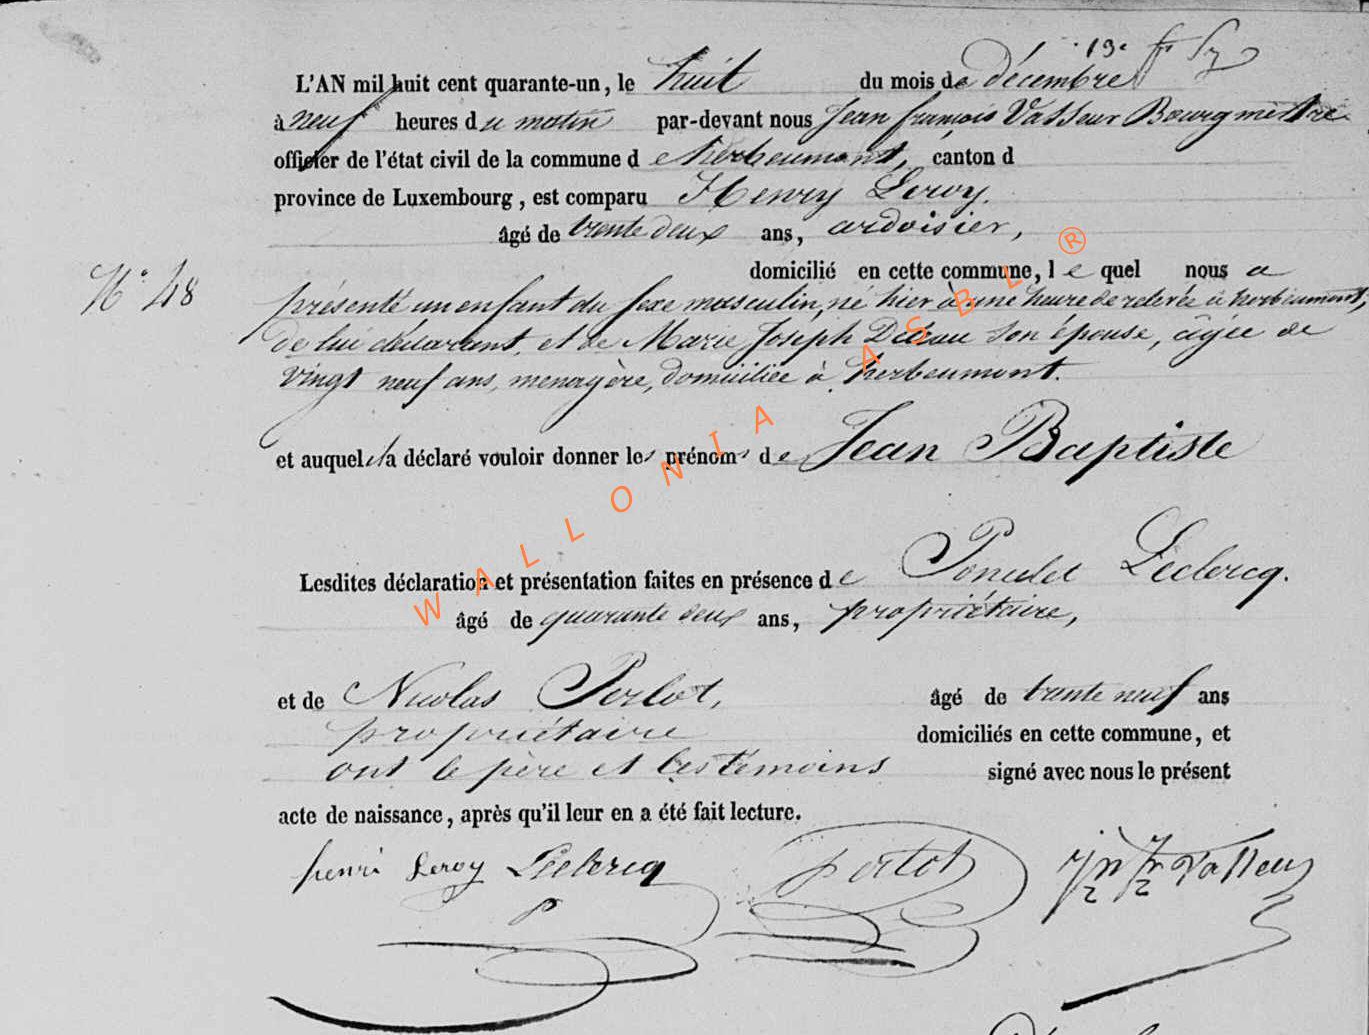 .19e f
L'AN mil huit cent quarante-un, le huit du mois de décembre
à neuf heures du matin par-devant nous Jean françois Vasseur Bourgmestre
officier de l'état civil de la commune de herbeumont, canton d
province de Luxembourg, est comparu Henry Leroy.
âgé de trente deux ans, ardoisier,
domicilié en cette commune, lequel nous a
N° 48
présenté un enfant du sexe masculin, né hier à une heure de relevée à herbeumont,
de lui déclarant, et de Marie Joseph son épouse, âgée de
vingt neuf ans, menagère, domiciliée à herbeumont.
et auquel il a déclaré vouloir donner les prénoms de Jean Baptiste
Lesdites déclaration et présentation faites en présence de Poncelet Leclercq.
âgé de quarante deux ans, propriétaire,
et de Nicolas Perlot, âgé de trente neuf ans
propriétaire domiciliés en cette commune, et
ont le père et les temoins signé avec nous le présent
acte de naissance, après qu'il leur en a été fait lecture.
henri Leroy Leclercq perlot Jn fr Vasseur
P
WALLONIA ASBL ®